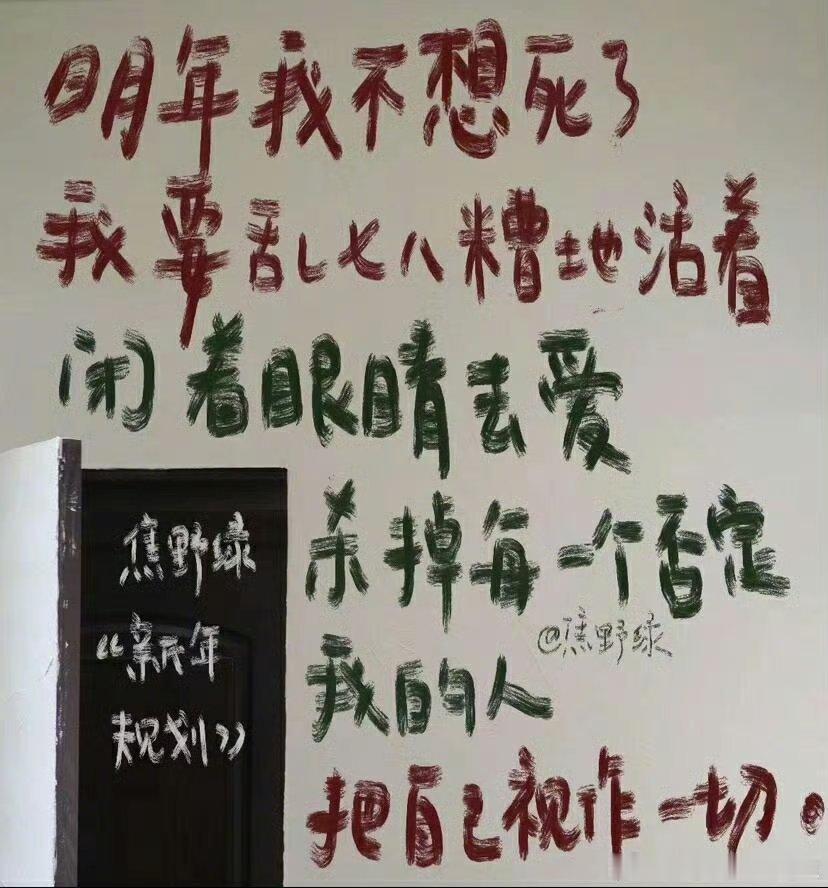 明年我不想死了
我要乱七八糟地活着
闭着眼睛去爱
杀掉每一个否定
我的人
把自己视作一切。
@蕉野绿
蕉野绿
“新年
规划”